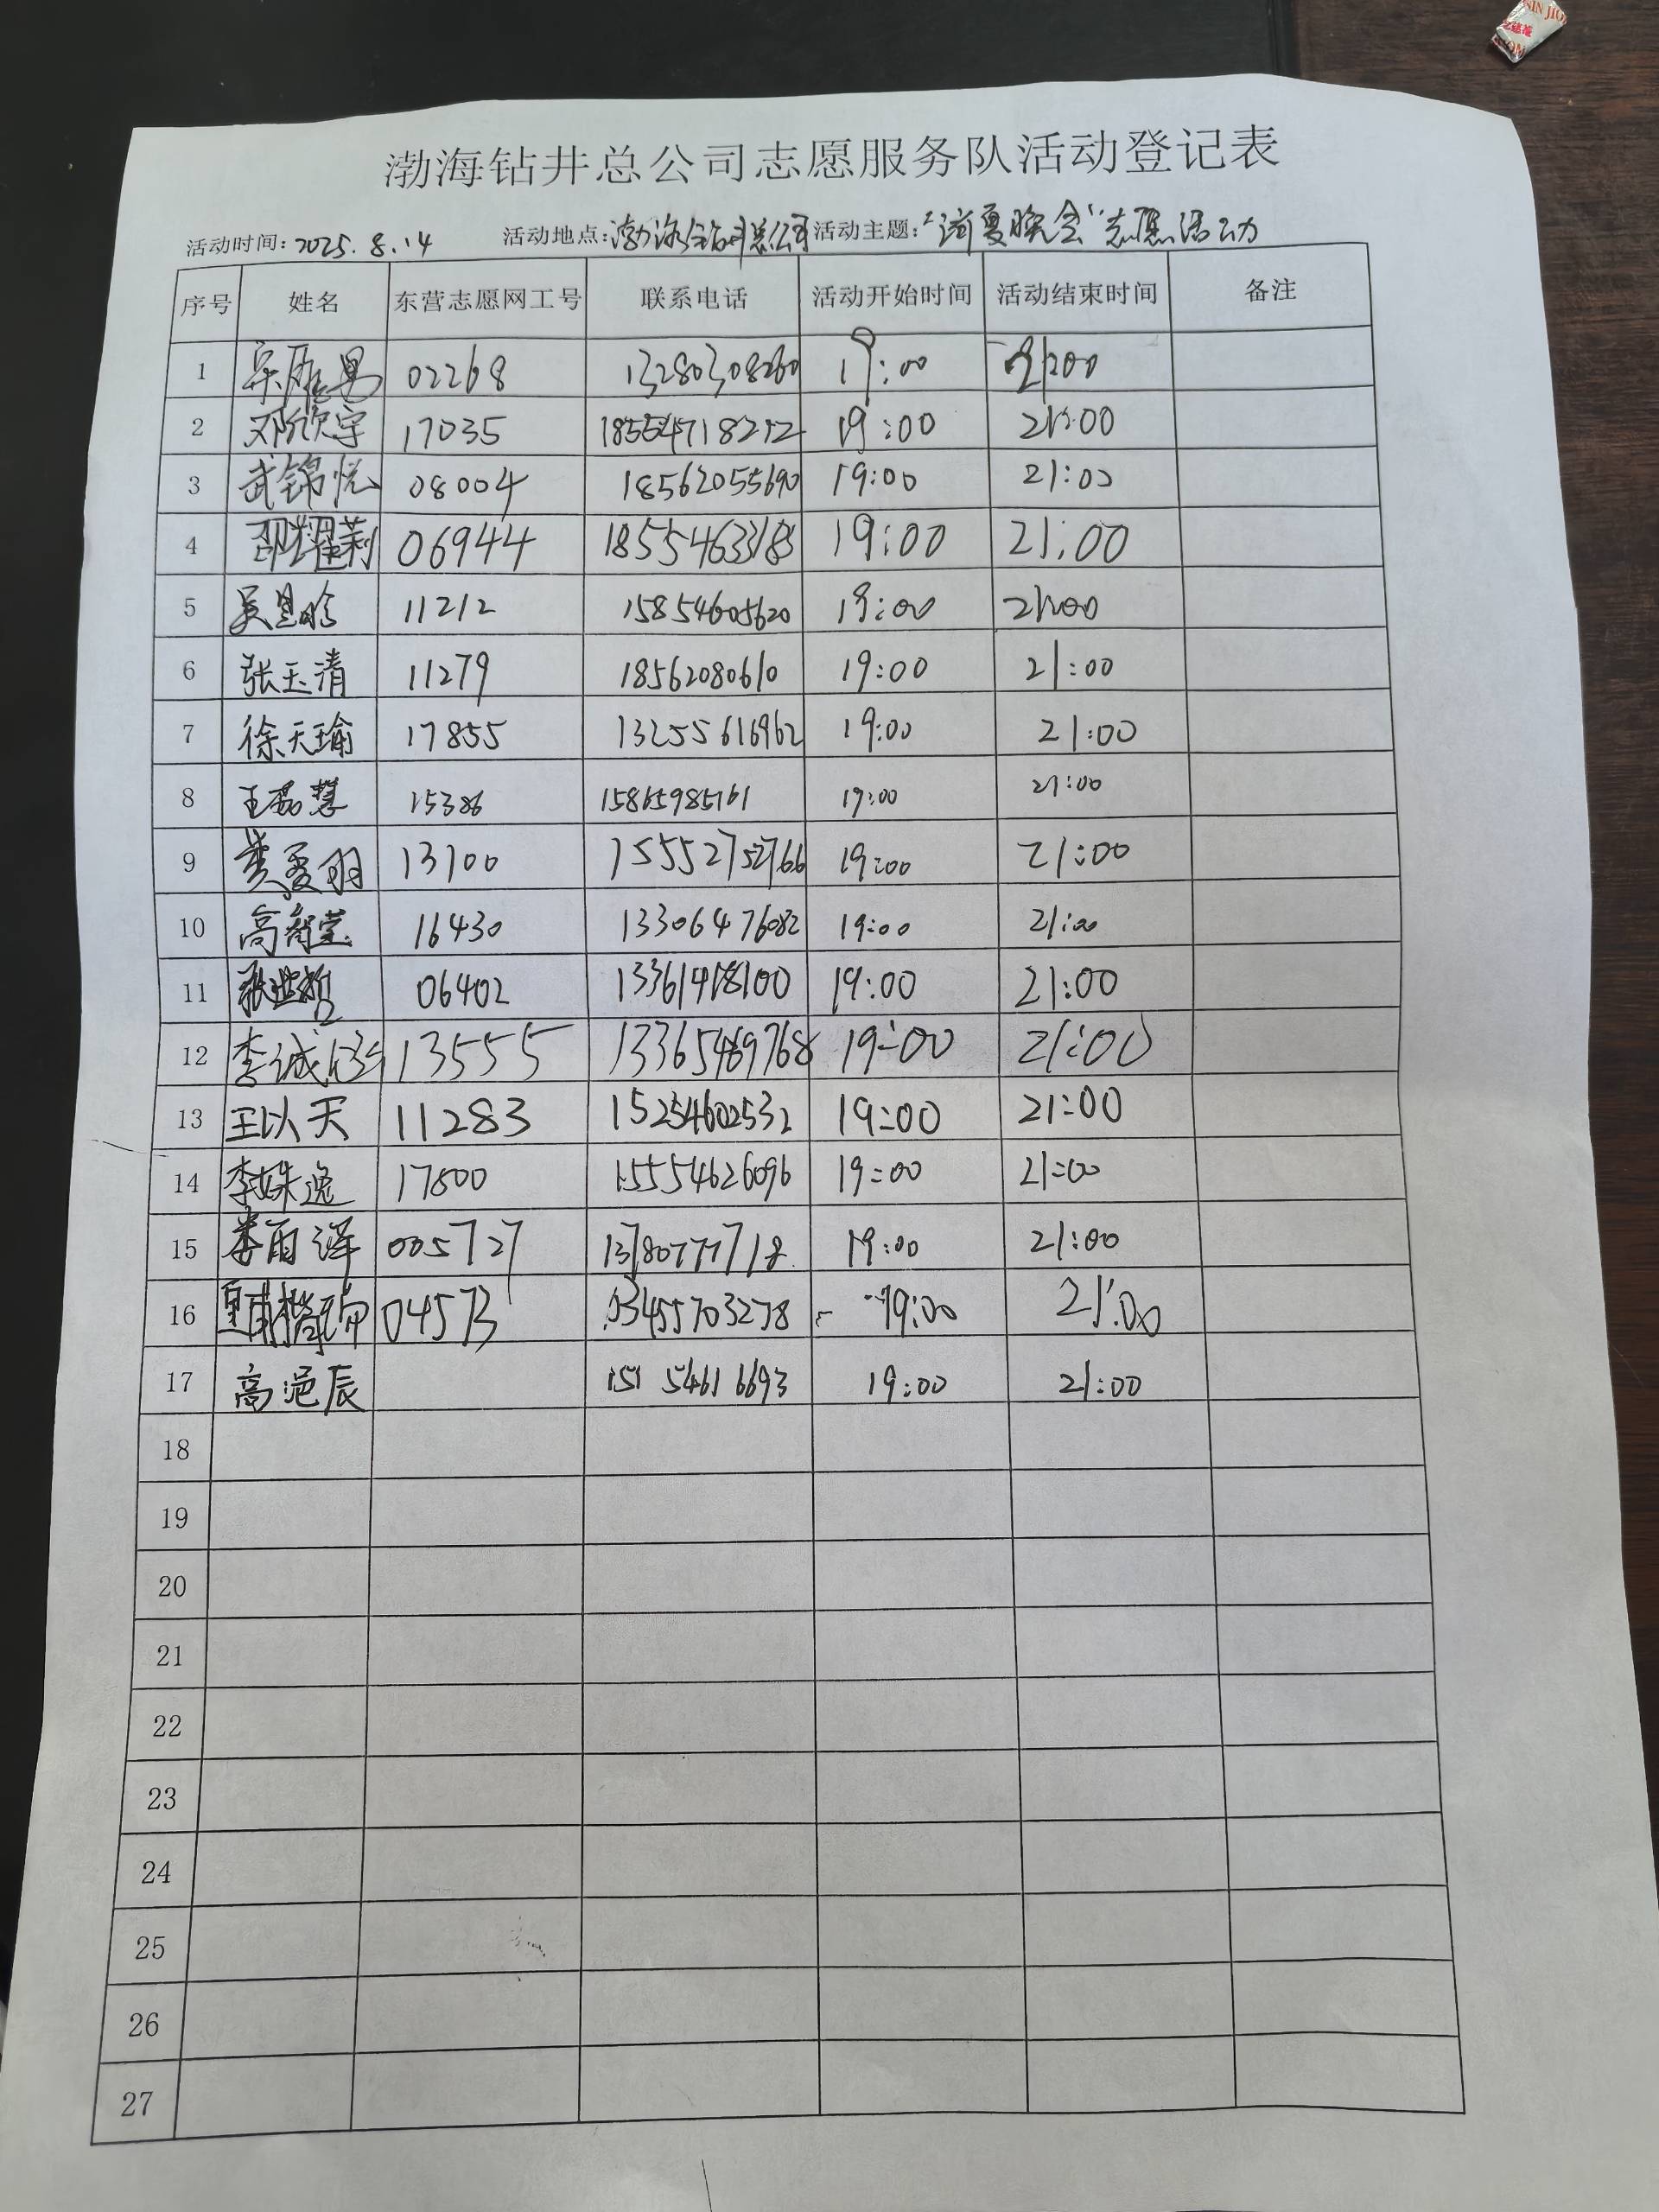 SIN JIO
渤海钻井总公司志愿服务队活动登记表
活动时间: 2025.8.14 活动地点: 渤海钻井总公司 活动主题: "消夏晚会"志愿活动
序号 姓名 东营志愿网工号 联系电话 活动开始时间 活动结束时间 备注
1 02268 13280308260 19:00 21:00
2 邓欣宇 17035 18554718212 19:00 21:00
3 武锦悦 08004 18562055690 19:00 21:00
4 邵耀莉 06944 18554633183 19:00 21:00
5 吴昱晗 11212 15854605620 19:00 21:00
6 张玉清 11279 18562080610 19:00 21:00
7 徐天瑜 17855 13255616962 19:00 21:00
8 王磊慧 15386 15865985161 19:00 21:00
9 黄夏羽 13100 15552752766 19:00 21:00
10 16430 13306476082 19:00 21:00
11 06402 13361418100 19:00 21:00
12 李诚 13555 13365469768 19:00 21:00
13 王以天 11283 15254602532 19:00 21:00
14 李姝逸 17800 15554626096 19:00 21:00
15 娄雨泽 005727 13780777718 19:00 21:00
16 04573 03455703278 19:00 21:00
17 高浥辰 151 5461 6693 19:00 21:00
18
19
20
21
22
23
24
25
26
27